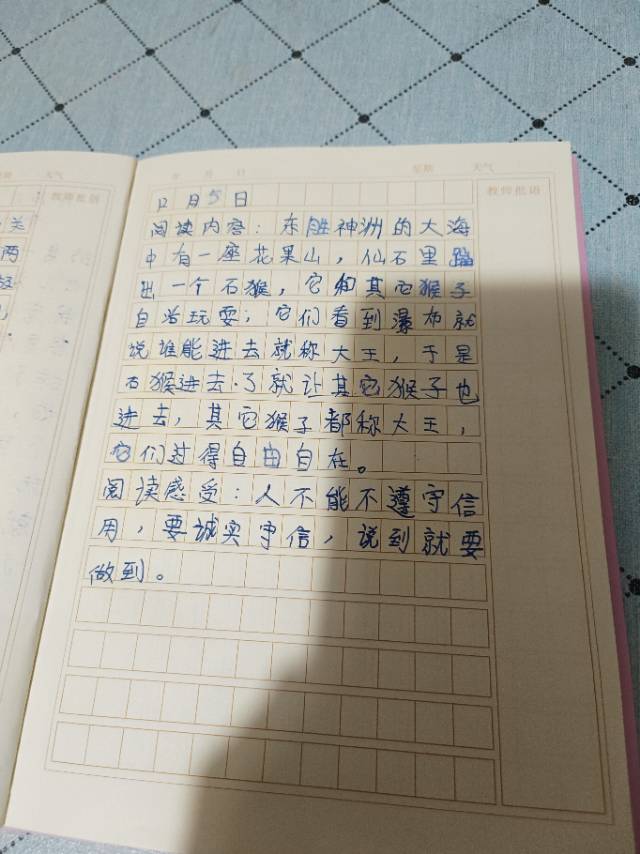 年 月 日 星期 天气
教师批语
12月5日
阅读内容：东胜神洲的大海
中有一座花果山，仙石里蹦
出一个石猴，它和其它猴子
自治玩耍；它们看到瀑布就
说谁能进去就称大王，于是
石猴进去了就让其它猴子也
进去，其它猴子都称大王，
它们过得自由自在。
阅读感受：人不能不遵守信
用，要诚实守信，说到就要
做到。
天气
教师批语
关
两